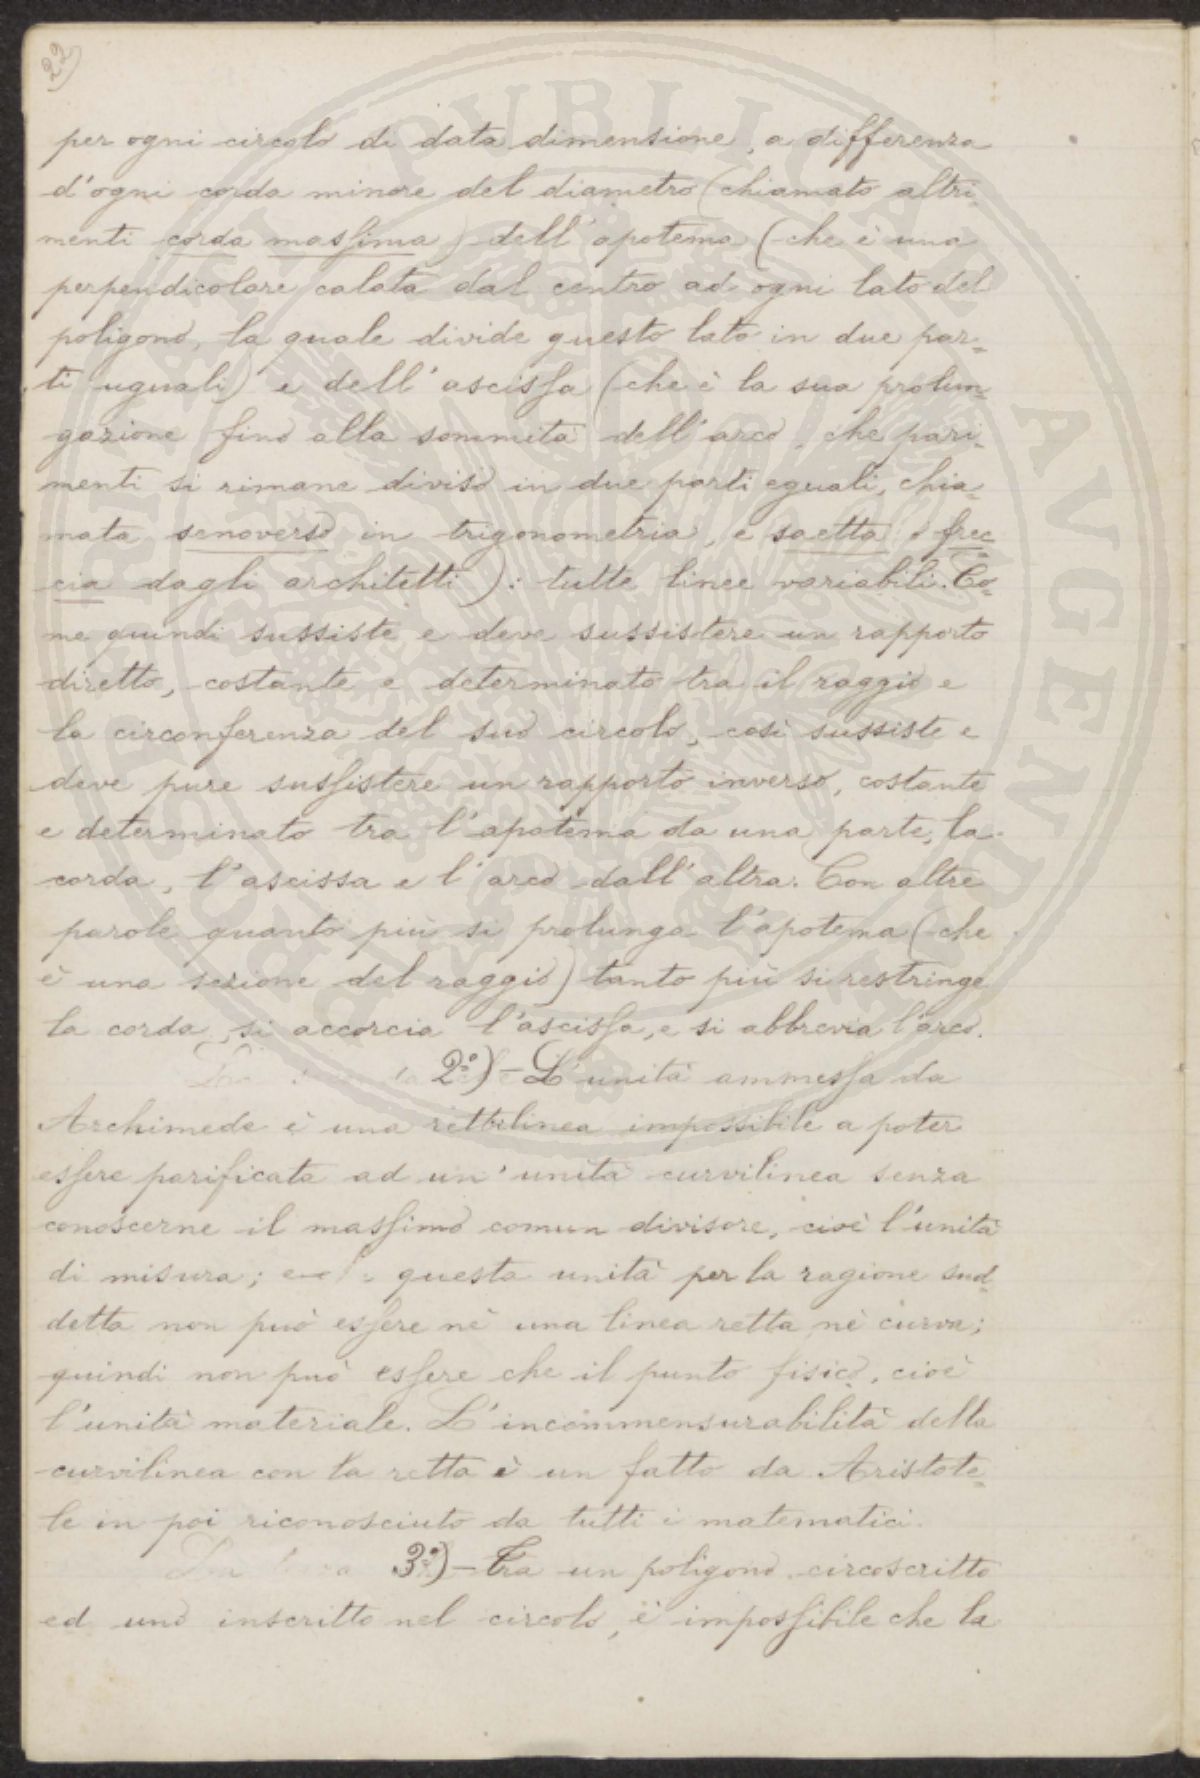 22)
per ogni circolo di data dimensione, a differenza
d'ogni corda minore del diametro (chiamato altri-
menti corda massima) dell'apotema (che è una
perpendicolare calata dal centro ad ogni lato del
poligono, la quale divide questo lato in due par-
ti uguali) e dell'ascissa (che è la sua prolun-
gazione fino alla sommità dell'arco, che pari-
menti si rimane diviso in due parti eguali, chia-
mata senoverso in trigonometria, e saetta o frec-
cia dagli architetti): tutte linee variabili. Co-
me quindi sussiste e deve sussistere un rapporto
diretto, costante e determinato tra il raggio e
la circonferenza del suo circolo, così sussiste e
deve pure sussistere un rapporto inverso, costante
e determinato tra l'apotema da una parte, la
corda, l'ascissa e l'arco dall'altra. Con altre
parole quanto più si prolunga l'apotema (che
è una sezione del raggio) tanto più si restringe
la corda, si accorcia l'ascissa, e si abbrevia l'arco.
2º) - L'unità ammessa da
Archimede è una rettilinea impossibile a poter
essere parificata ad un'unità curvilinea senza
conoscerne il massimo comun divisore, cioè l'unità
di misura; questa unità per la ragione sud-
detta non può essere nè una linea retta, nè curva;
quindi non può essere che il punto fisico, cioè
l'unità materiale. L'incommensurabilità della
curvilinea con la retta è un fatto da Aristote-
le in poi riconosciuto da tutti i matematici.
3º) - Tra un poligono circoscritto
ed uno inscritto nel circolo, è impossibile che la
PUBLICAE AVGENDAE